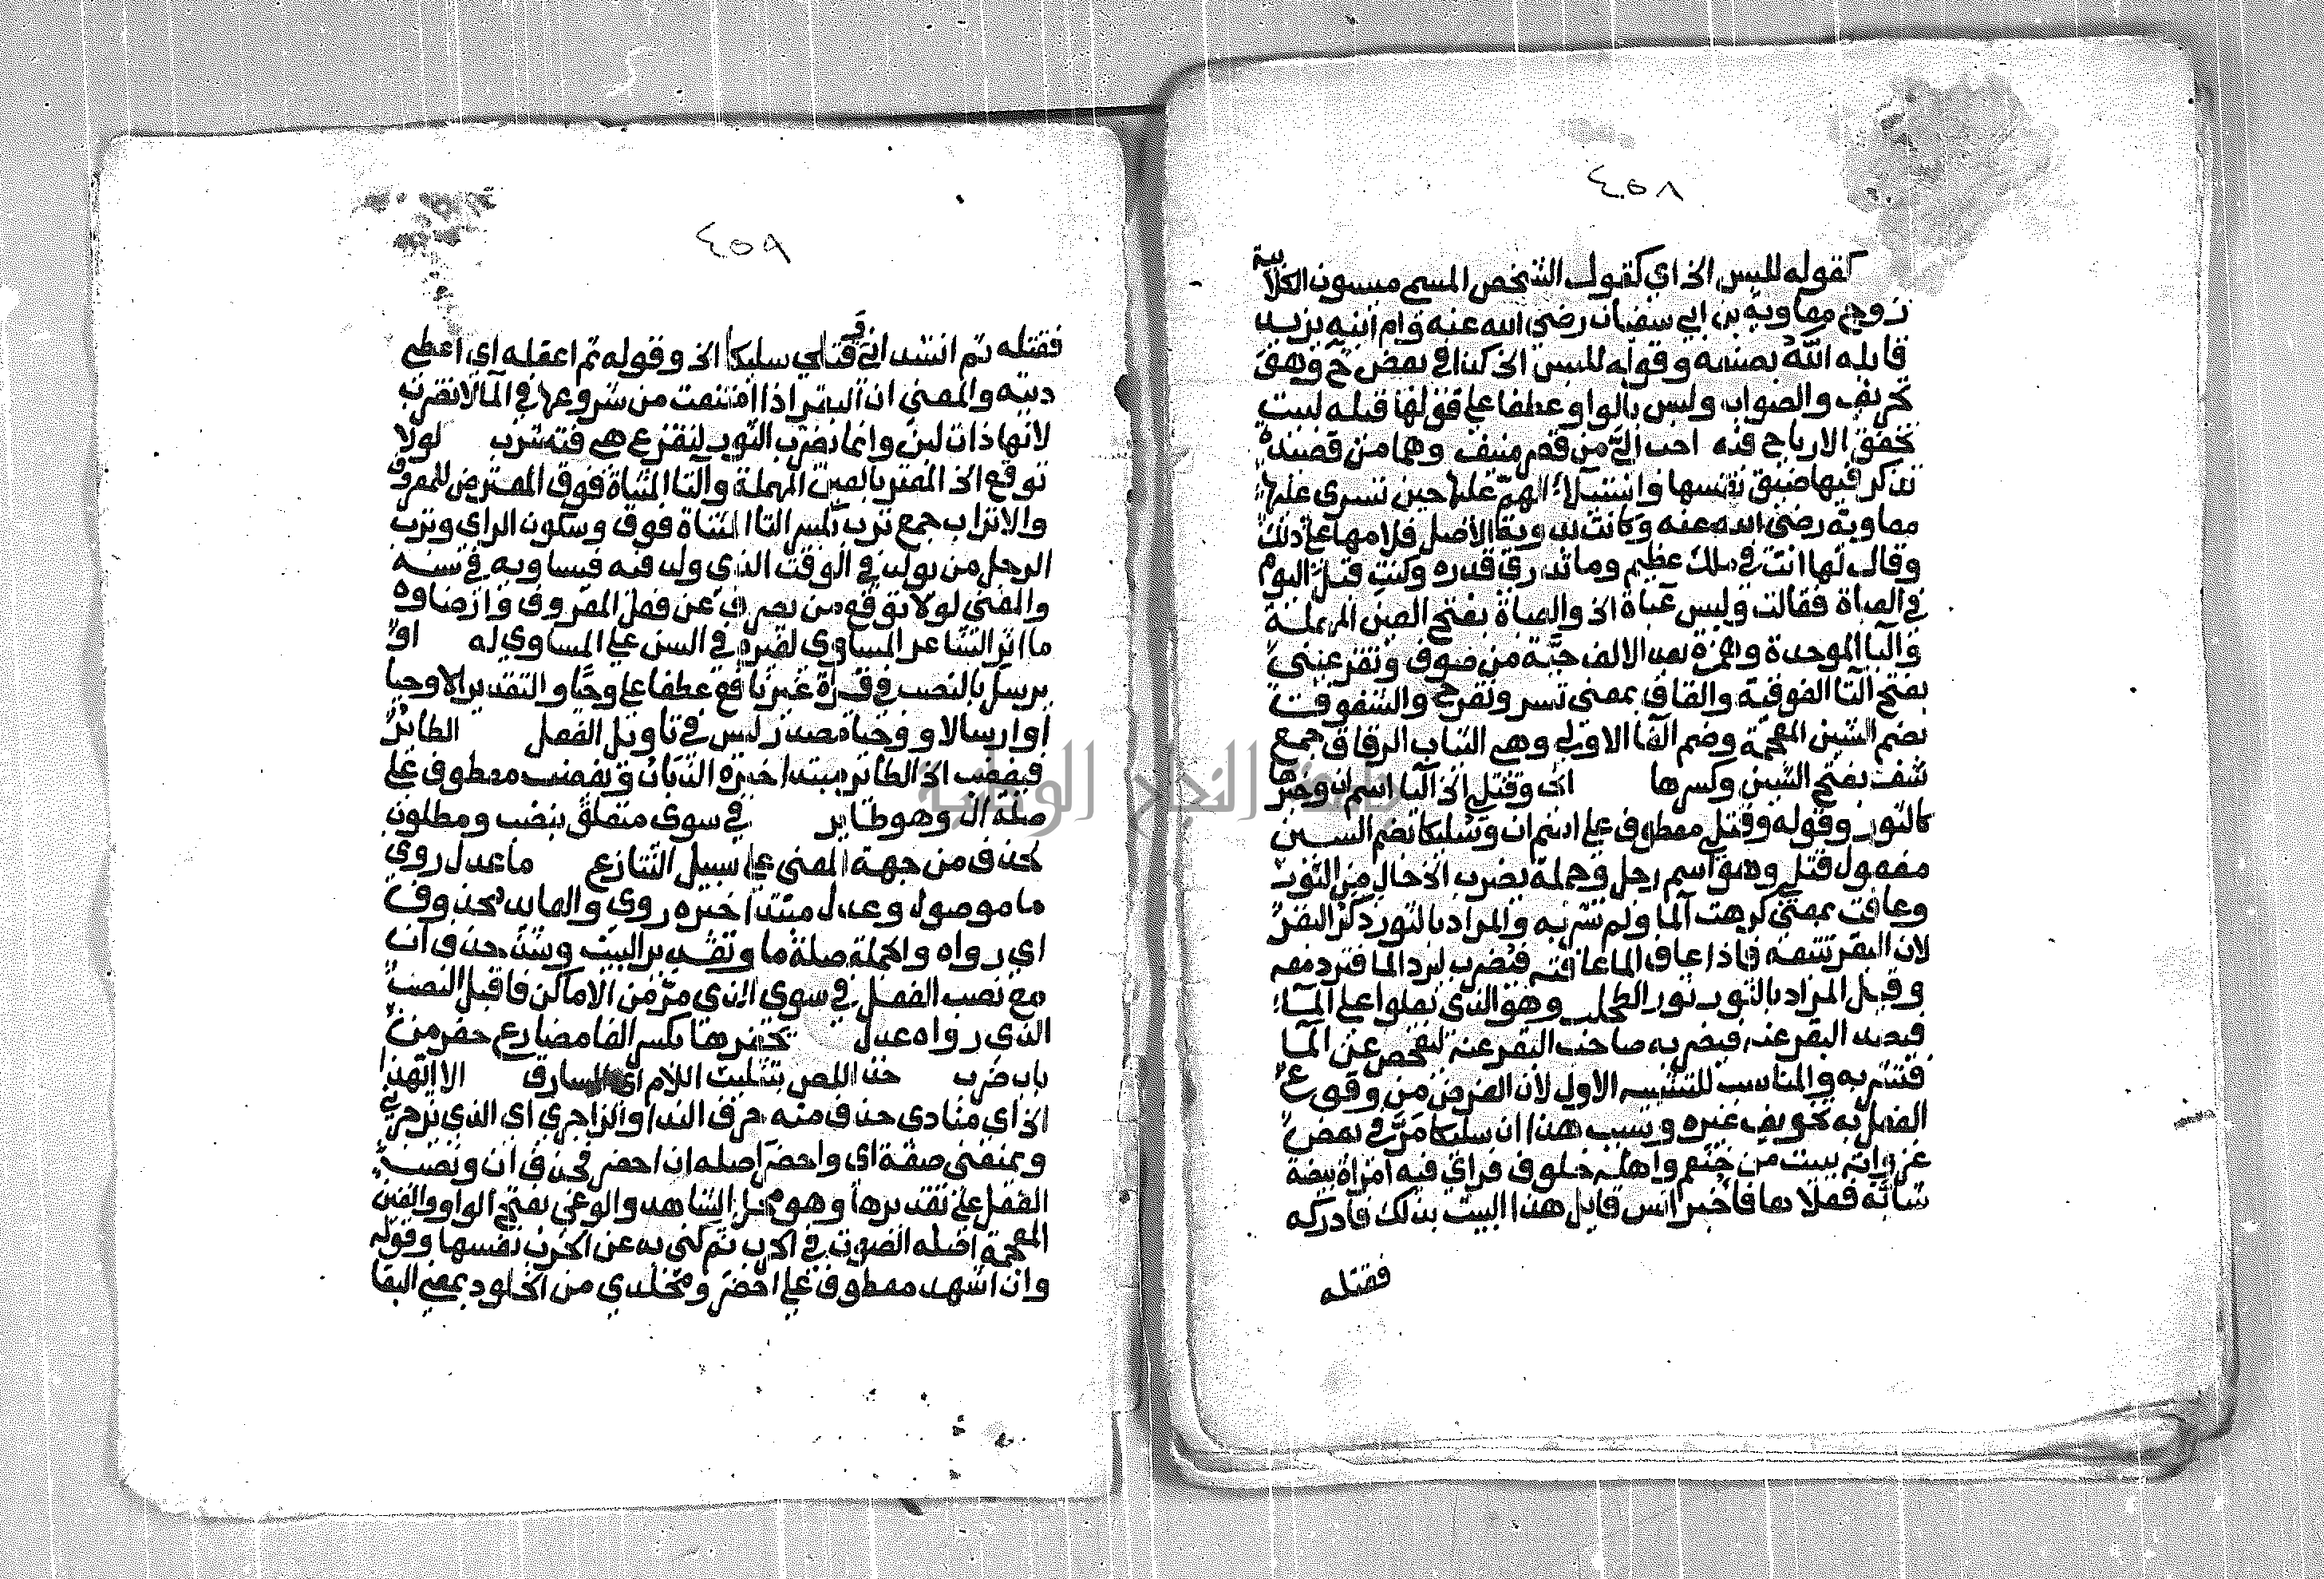 ٤٥٨
كقوله للبس الخ اي كقول الشخص المسمى ميسون الكلابية
زوج معاوية بن ابي سفيان رضي الله عنه وام ابنه يزيد
قابله الله بصنيعه وقوله للبس الخ كذا في بعض نسخ وهو
تحريف والصواب ولبس بالواو عطفا على قولها قبله لبيت
تخفق الارياح فيه احب الي من قصر منيف وهما من قصيدة
تذكر فيها ضيق نفسها واستيلاء الهم عليها حين تسرى عليها
معاوية رضي الله عنه وكانت بدوية الاصل فلامها على ذلك
وقال لها انت في ملك عظيم وما تدري قدره وكنت قبل اليوم
في العباة فقالت ولبس عباة الخ والعباة بفتح العين المهملة
والبا الموحدة وهمزة بعد الالف جبة من صوف وتقر عيني
بفتح التا الفوقية والقاف بمعنى تسر وتفرح والشفوف
بضم الشين المعجمة وضم الفا الاولى وهي الثياب الرقاق جمع
شف بفتح الشين وكسرها اني وقتلي الخ اليا اسم ان وخبرها
كالثور وقوله وقتلي معطوف على اسم ان وسليكا بضم السين
مفعول قتلي وهو اسم رجل وجملة يضرب الخ حال من الثور
وعافت بمعنى كرهت الما ولم تشربه والمراد بالثور ذكر البقر
لان البقر تتبعه فاذا عاف الما عافته فيضرب ليرد الما فترد معه
وقيل المراد بالثور ثور الطحلب وهو الذي يعلوا على الماء
فيصد البقر عنه فيضربه صاحب البقر عنه ليفحص عن الما
فتشربه والمناسب للتشبيه الاول لان الغرض من وقوع
الفعل به تخويف غيره وسبب هذا ان سليكا مر في بعض
غزواته ببيت من خثعم واهله خلوف فراي فيه امراة بيضة
شابة فعلاها فاخبر انس قايل هذا البيت بذلك فادركه
فقتله
٤٥٩
فقتله ثم انشد اني وقتلي سليكا الخ وقوله ثم اعقله اي اعطي
ديته والمعنى ان البقر اذا امتنعت من شروعها في الما لا تضرب
لانها ذات لبن وانما يضرب الثور لتفزع هي فتشرب لولا
توقع الخ المعتر بالعين المهملة والتا المثناة فوق المعترض للمعروف
والاتراب جمع ترب بكسر التا المثناة فوق وسكون الراي وترب
الرجل من يولد في الوقت الذي ولد فيه فيساويه في سنه
والمعنى لولا توقع من يصرف عن فعل المعروف وارضاوه
ما اثر الشاعر المساوي لغيره في السن على المساوي له او
يرسل بالنصب في قراة غير نافع عطفا على وحيا والتقدير الا وحيا
او ارسالا و وحيا مصدر ليس في تاويل الفعل الطائر
فيغضب الخ الطاير مبتدا خبره الذباب ويغضب معطوف على
صلة ال وهو طاير في سوى متعلق بنصب ومطلوب
لحذف من جهة المعنى على سبيل التنازع ما عدل روى
ما موصول وعدل مبتدا خبره روى والعايد محذوف
اي رواه والجملة صلة ما وتقدير البيت وشذ حذف ان
مع نصب الفعل في سوى الذي مر من الاماكن فاقبل النصب
الذي رواه عدل تحفرها بكسر الفا مضارع حفر من
باب ضرب خذ اللص بتثليث اللام اي السارق الا ايهذا
الخ اي منادى حذف منه حرف الندا والزاجري اي الذي يزجرني
ويمنعني صفة اي واحضر اصله ان احضر فحذف ان ونصب
الفعل على تقديرها وهو محل الشاهد والوغى بفتح الواو والغين
المعجمة اصله الصوت في الحرب ثم كني به عن الحرب نفسها وقوله
وان اشهد معطوف على احضر ومخلدي من الخلود بمعنى البقا
جامعة النجاح الوطنية